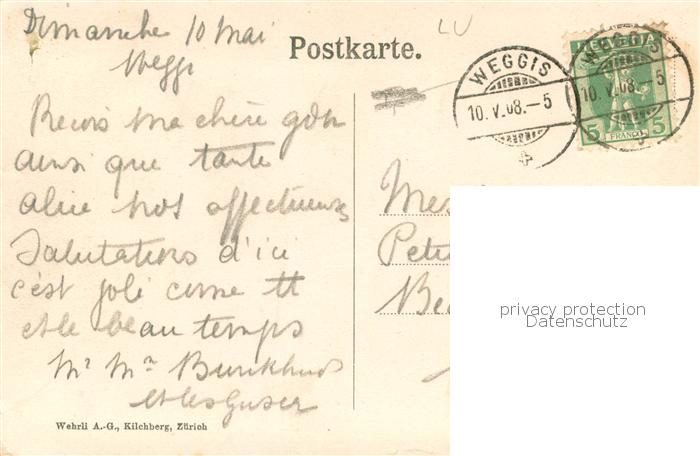 Dimanche 10 Mai
Weggis
LU
Postkarte.
WEGGIS
10.V.08.–5
WEGGIS
10.V.08.–5
HELVETIA
5 FRANCO 5
Recois ma chère
ainsi que tante
alice nos affectueuses
Salutations d'ici
c'est joli come tt
et le beau temps
Mr Me
Mes
Petit
Be
privacy protection
Datenschutz
Wehrli A.-G., Kilchberg, Zürich